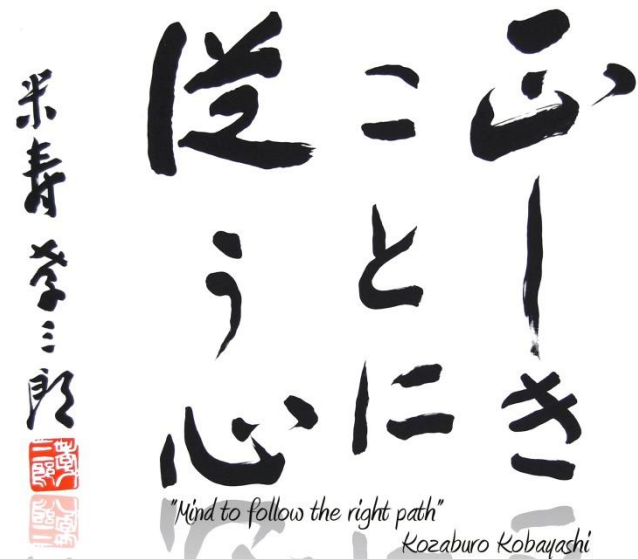 正しき
ことに
従う心
米寿 孝三郎
孝三郎
"Mind to follow the right path"
Kozaburo Kobayashi